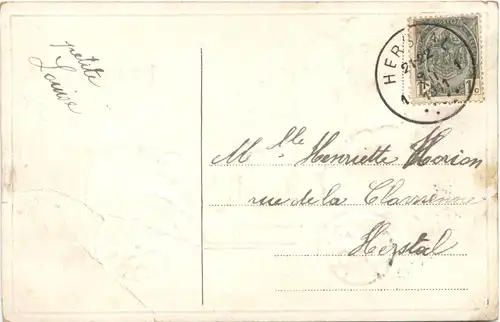 petite
Louise
HERS
1 1
Mlle Henriette Horion
rue de la Clawenne
Herstal